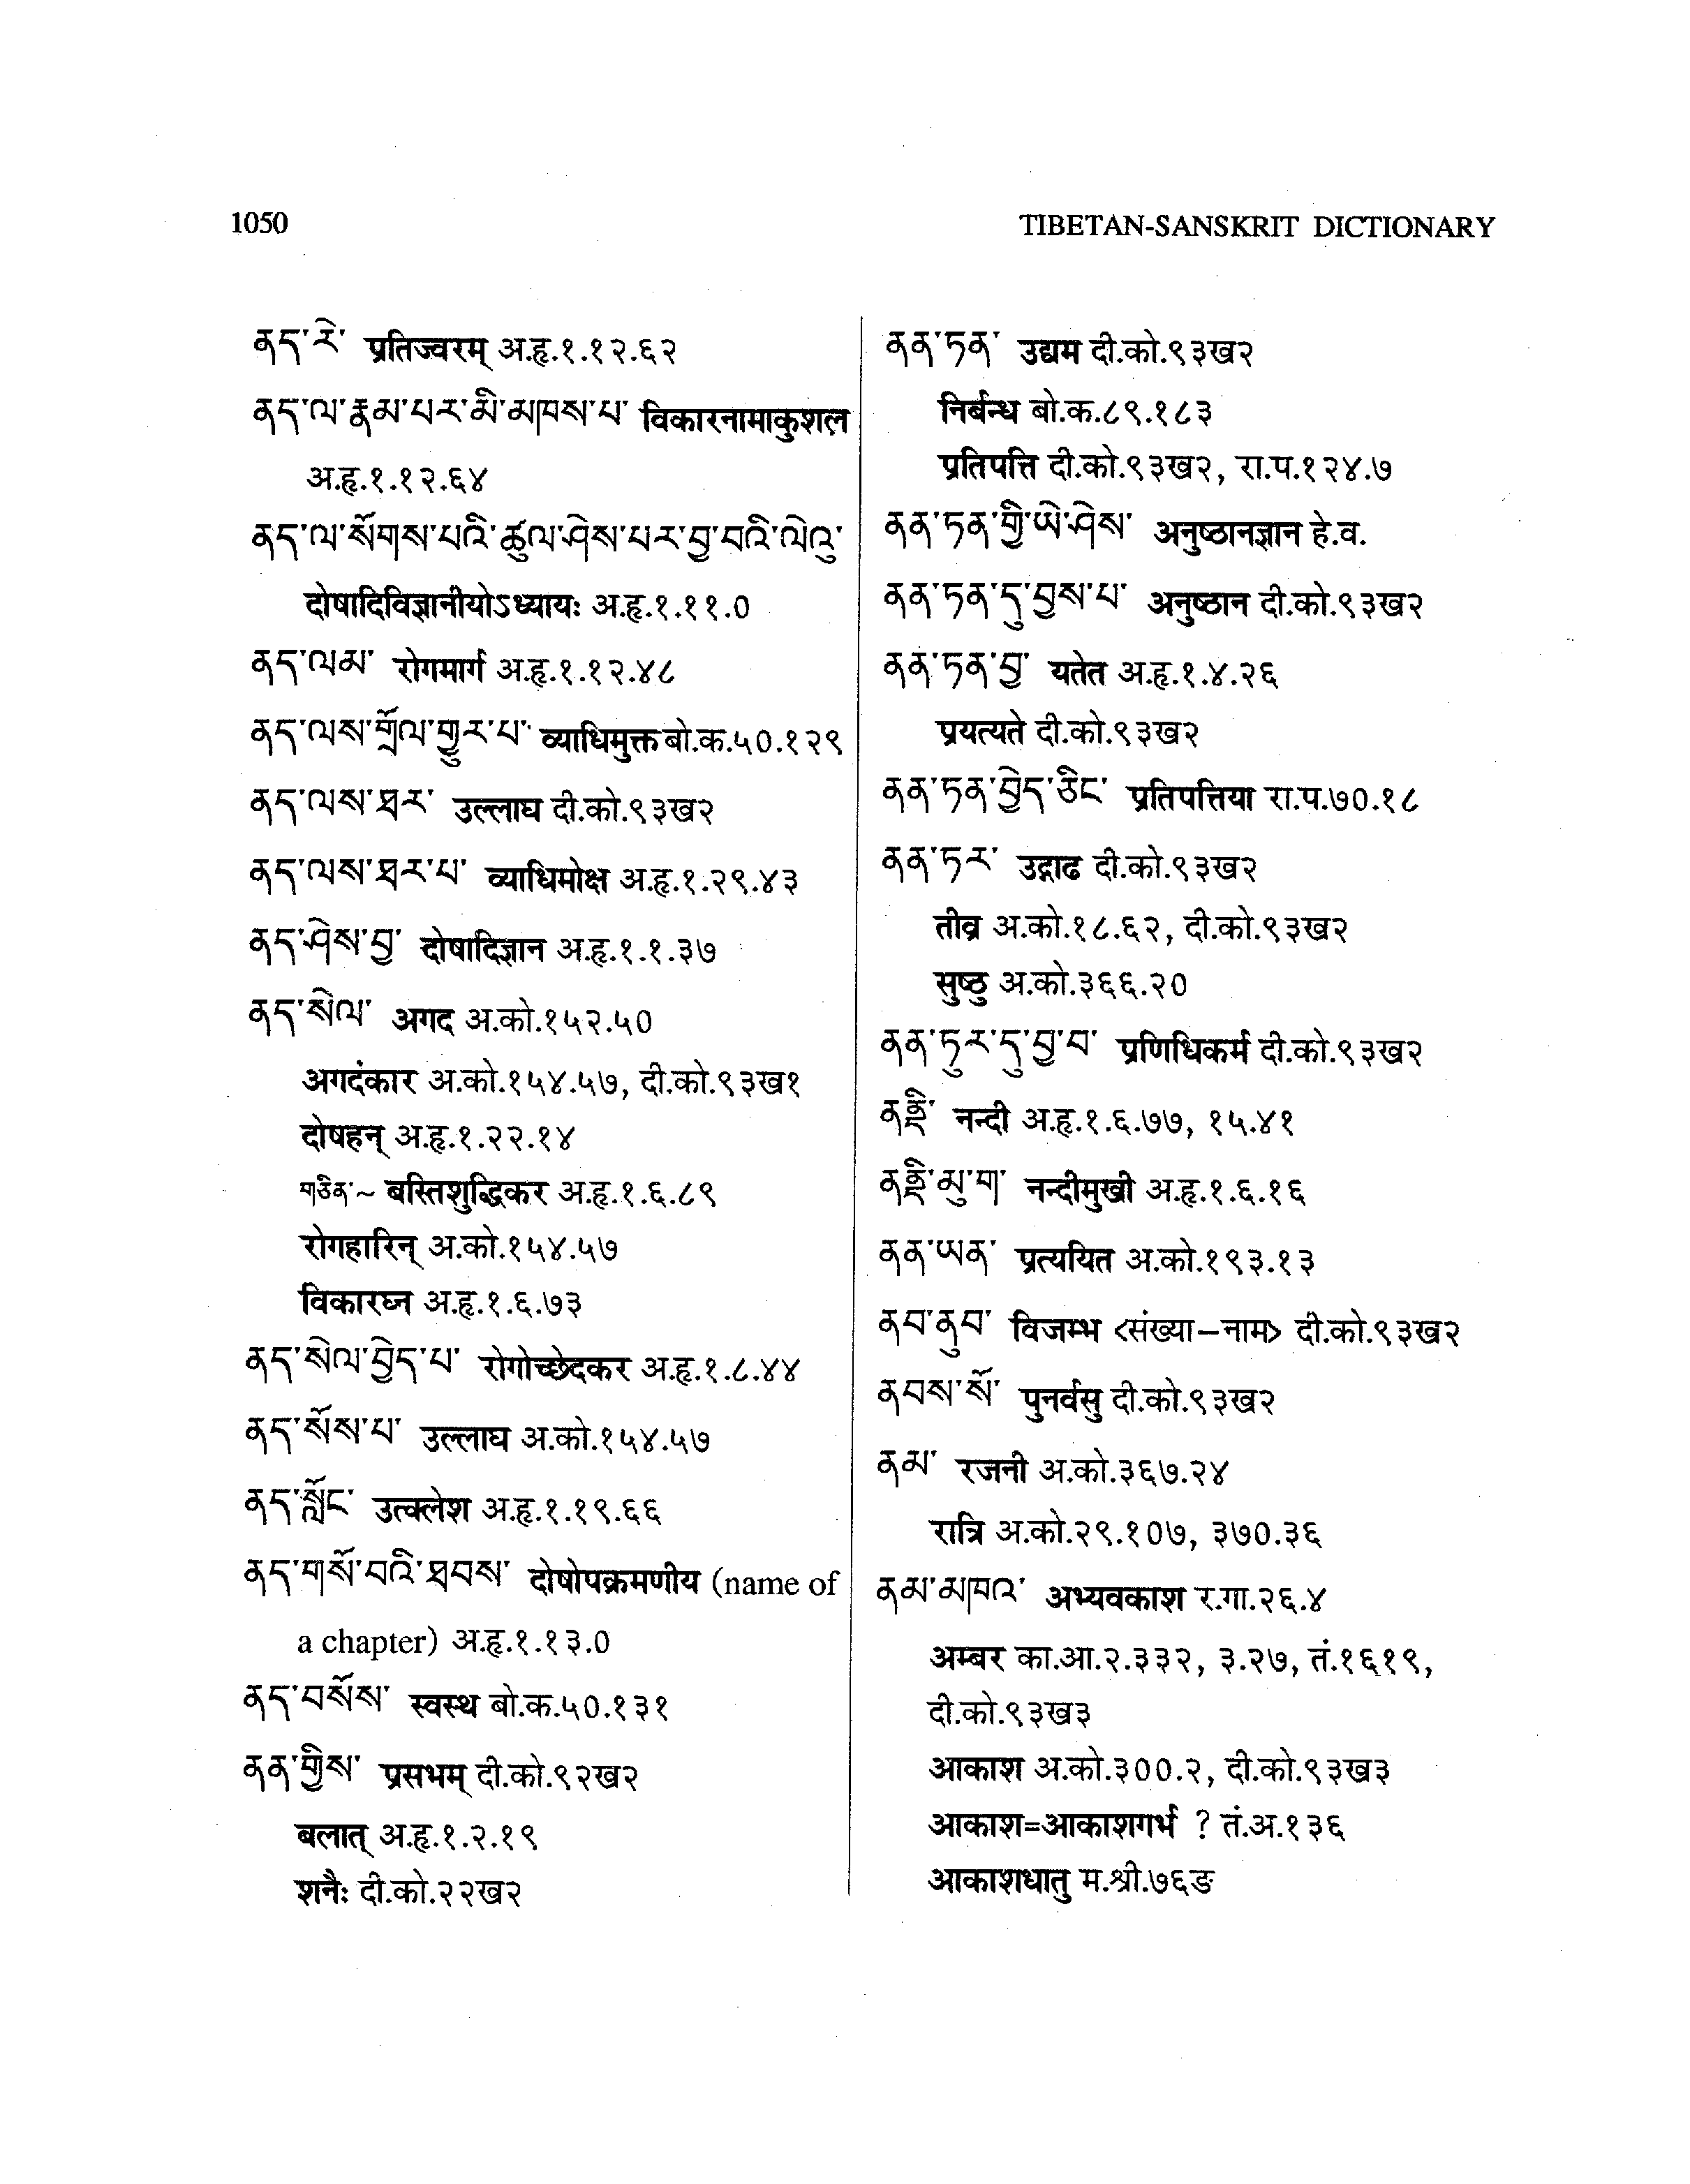 1050
TIBETAN-SANSKRIT DICTIONARY
ནད་རེ་ प्रतिज्वरम् अ.हृ.१.१२.६२
ནད་ལ་རྣམ་པར་མི་མཁས་པ་ विकारनामाकुशल
अ.हृ.१.१२.६४
ནད་ལ་སོགས་པའི་ཚུལ་ཤེས་པར་བྱ་བའི་ལེའུ་
दोषादिविज्ञानीयोऽध्यायः अ.हृ.१.११.0
ནད་ལམ་ रोगमार्ग अ.हृ.१.१२.४८
ནད་ལས་གྲོལ་གྱུར་པ་ व्याधिमुक्त बो.क.५0.१२९
ནད་ལས་ཐར་ उल्लाघ दी.को.९३ख२
ནད་ལས་ཐར་པ་ व्याधिमोक्ष अ.हृ.१.२९.४३
ནད་ཤེས་བྱ་ दोषादिज्ञान अ.हृ.१.१.३७
ནད་སེལ་ अगद अ.को.१५२.५0
अगदंकार अ.को.१५४.५७, दी.को.९३ख१
दोषहन् अ.हृ.१.२२.१४
གཅིན་~ बस्तिशुद्धिकर अ.हृ.१.६.८९
रोगहारिन् अ.को.१५४.५७
विकारघ्न अ.हृ.१.६.७३
ནད་སེལ་བྱེད་པ་ रोगोच्छेदकर अ.हृ.१.८.४४
ནད་སོས་པ་ उल्लाघ अ.को.१५४.५७
ནད་སློང་ उत्क्लेश अ.हृ.१.१९.६६
ནད་གསོ་བའི་ཐབས་ दोषोपक्रमणीय (name of
a chapter) अ.हृ.१.१३.0
ནད་བསོས་ स्वस्थ बो.क.५0.१३१
ནན་གྱིས་ प्रसभम् दी.को.९२ख२
बलात् अ.हृ.१.२.१९
शनैः दी.को.२२ख२
ནན་ཏན་ उद्यम दी.को.९३ख२
निर्बन्ध बो.क.८९.१८३
प्रतिपत्ति दी.को.९३ख२, रा.प.१२४.७
ནན་ཏན་གྱི་ཡེ་ཤེས་ अनुष्ठानज्ञान हे.व.
ནན་ཏན་དུ་བྱས་པ་ अनुष्ठान दी.को.९३ख२
ནན་ཏན་བྱ་ यतेत अ.हृ.१.४.२६
प्रयत्यते दी.को.९३ख२
ནན་ཏན་བྱེད་ཅིང་ प्रतिपत्तिया रा.प.७0.१८
ནན་ཏར་ उद्गाढ दी.को.९३ख२
तीव्र अ.को.१८.६२, दी.को.९३ख२
सुष्ठु अ.को.३६६.२0
ནན་ཏུར་དུ་བྱ་བ་ प्रणिधिकर्म दी.को.९३ख२
ནནྡི་ नन्दी अ.हृ.१.६.७७, १५.४१
ནནྡི་མུ་ཁ་ नन्दीमुखी अ.हृ.१.६.१६
ནན་ཡན་ प्रत्ययित अ.को.१९३.१३
ནབ་ནུབ་ विजम्भ <संख्या–नाम> दी.को.९३ख२
ནབས་སོ་ पुनर्वसु दी.को.९३ख२
ནམ་ रजनी अ.को.३६७.२४
रात्रि अ.को.२९.१0७, ३७0.३६
ནམ་མཁའ་ अभ्यवकाश र.गा.२६.४
अम्बर का.आ.२.३३२, ३.२७, तं.१६१९,
दी.को.९३ख३
आकाश अ.को.३00.२, दी.को.९३ख३
आकाश=आकाशगर्भ ? तं.अ.१३६
आकाशधातु म.श्री.७६ङ